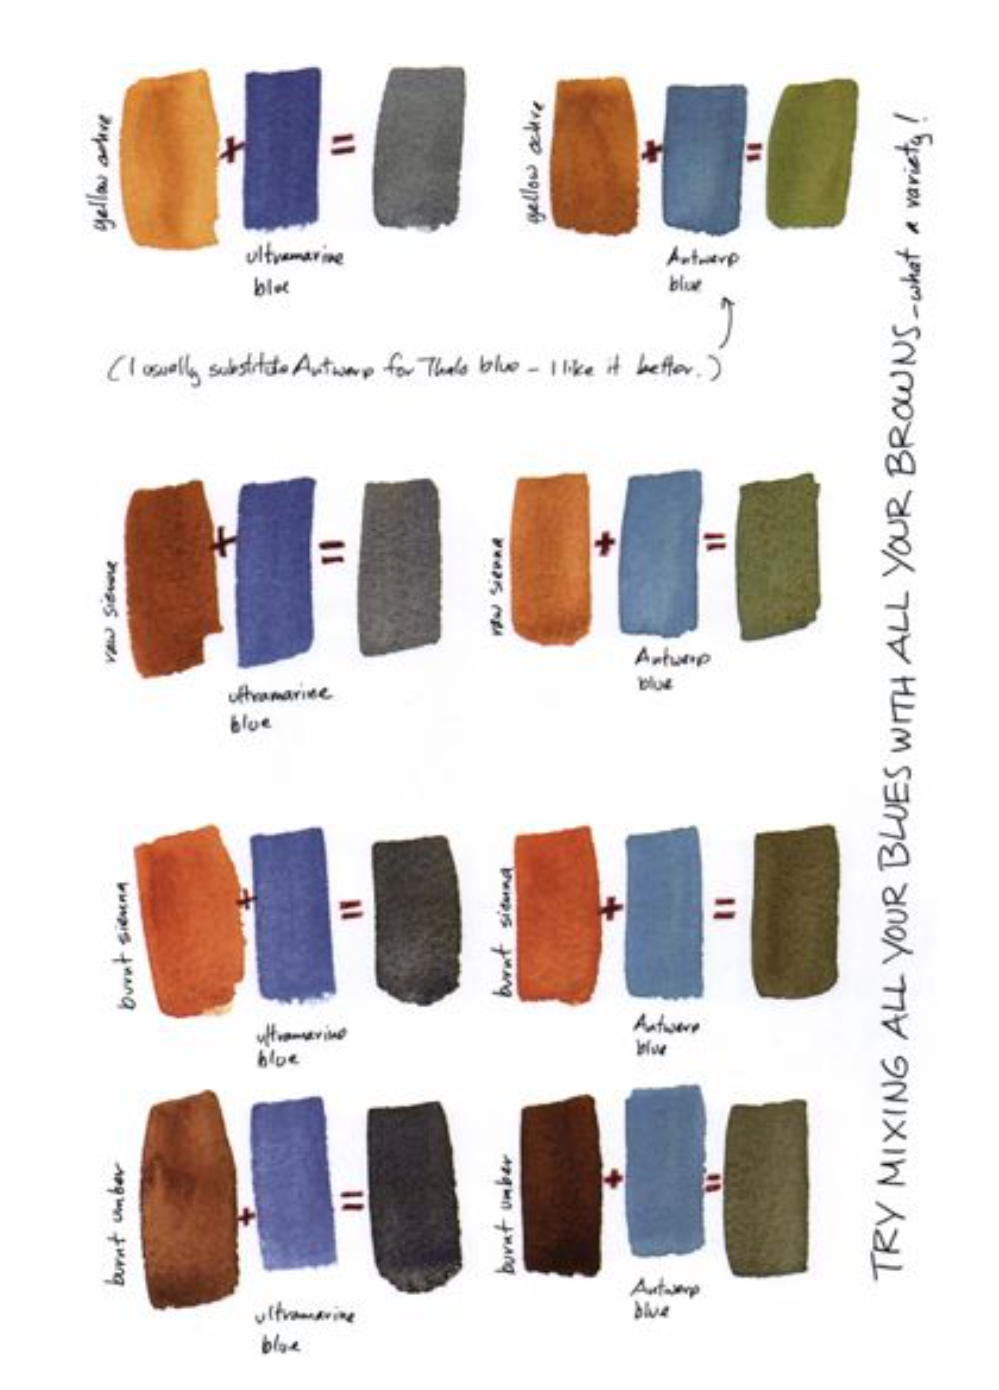 yellow ochre
+
ultramarine
blue
=
yellow ochre
+
Antwerp
blue
=
(I usually substitute Antwerp for Thalo blue – I like it better.)
raw sienna
+
ultramarine
blue
=
raw sienna
+
Antwerp
blue
=
burnt sienna
+
ultramarine
blue
=
burnt sienna
+
Antwerp
blue
=
burnt umber
+
ultramarine
blue
=
burnt umber
+
Antwerp
blue
=
TRY MIXING ALL YOUR BLUES WITH ALL YOUR BROWNS – what a variety!